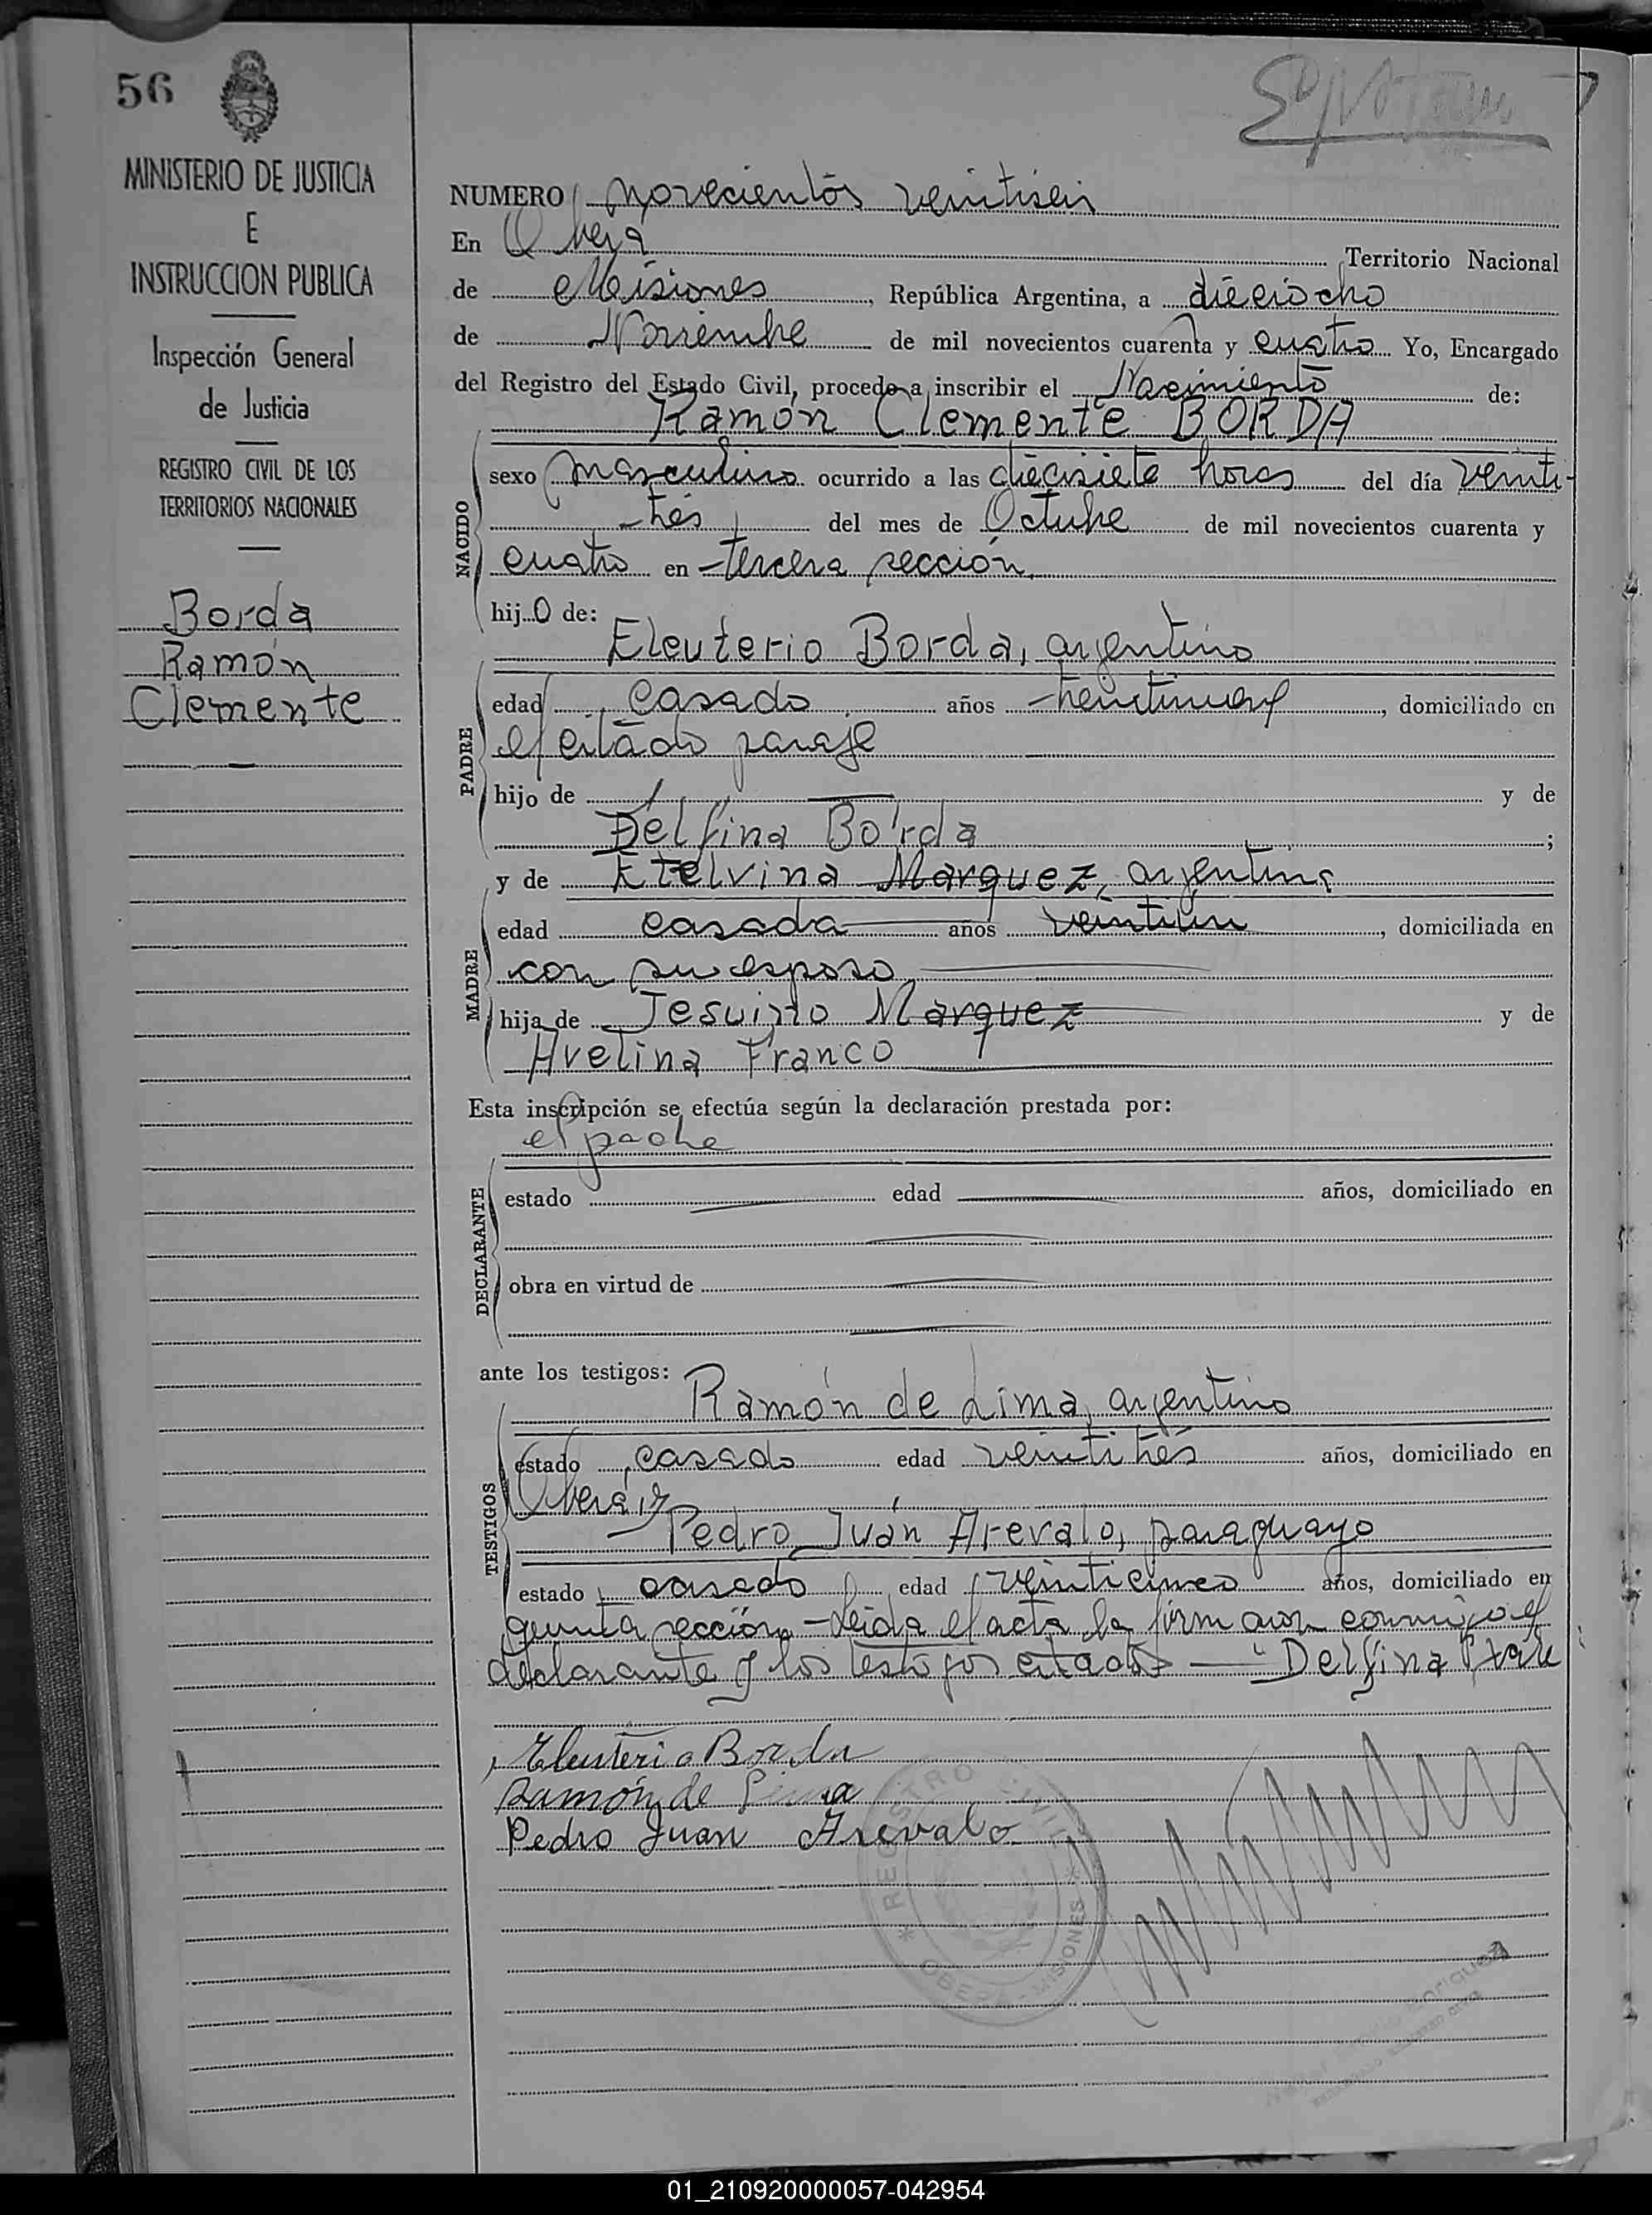 56
MINISTERIO DE JUSTICIA
E
INSTRUCCION PUBLICA
Inspección General
de Justicia
REGISTRO CIVIL DE LOS
TERRITORIOS NACIONALES
Borda
Ramón
Clemente
NUMERO novecientos veintiseis
En Oberá Territorio Nacional
de Misiones, República Argentina, a dieciocho
de Noviembre de mil novecientos cuarenta y cuatro Yo, Encargado
del Registro del Estado Civil, procedo a inscribir el Nacimiento de:
Ramón Clemente BORDA
NACIDO
sexo masculino ocurrido a las diecisiete horas del día veinti-
trés del mes de Octubre de mil novecientos cuarenta y
cuatro en tercera sección
hijo de:
Eleuterio Borda, argentino
PADRE
edad casado años treintinueve, domiciliado en
el citado paraje
hijo de — y de
Delfina Borda;
y de Etelvina Marquez, argentina
MADRE
edad casada años veintiun, domiciliada en
con su esposo
hija de Jesuino Marquez y de
Avelina Franco
Esta inscripción se efectúa según la declaración prestada por:
el padre
DECLARANTE
estado — edad — años, domiciliado en
obra en virtud de
ante los testigos:
Ramón de Lima, argentino
TESTIGOS
estado casado edad veintitrés años, domiciliado en
Oberá, y
Pedro Juán Arevalo, paraguayo
estado casado edad veinticinco años, domiciliado en
quinta sección - Leida el acta la firman conmigo el
declarante y los testigos citados — "Delfina
Eleuterio Borda
Ramón de Lima
Pedro Juan Arevalo
* REGISTRO CIVIL *
OBERA - MISIONES
01_210920000057-042954